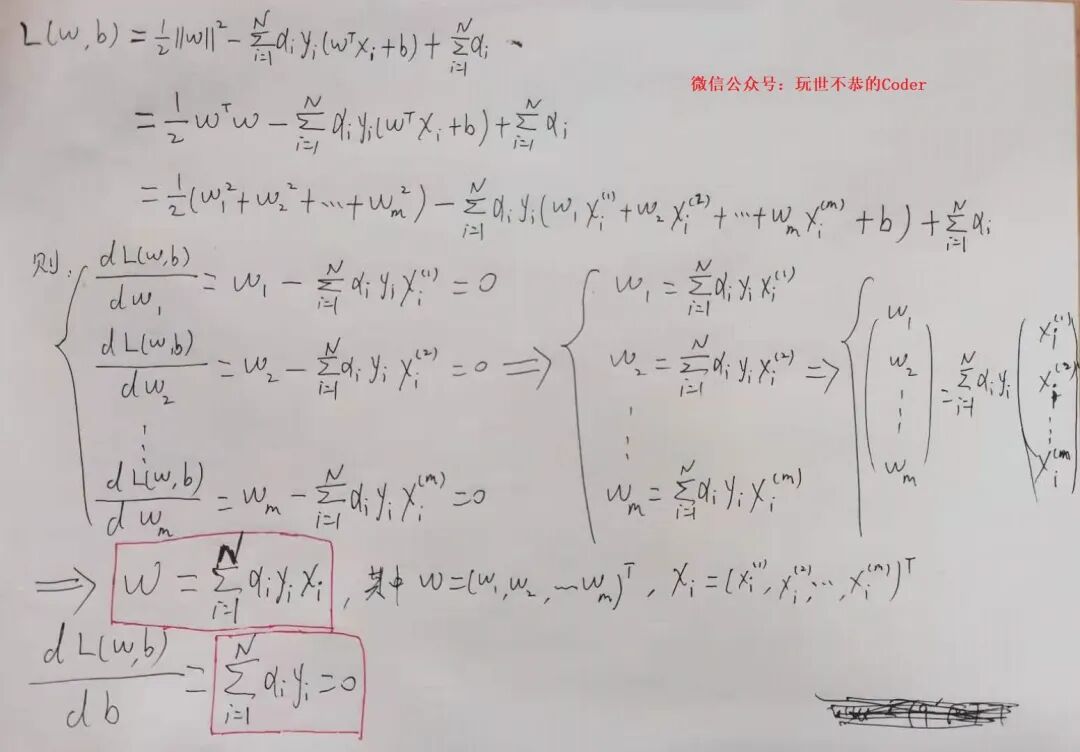 L(w,b) = ½||w||² - ∑_{i=1}^{N} α_i y_i (w^T x_i + b) + ∑_{i=1}^{N} α_i
微信公众号：玩世不恭的Coder
= ½ w^T w - ∑_{i=1}^{N} α_i y_i (w^T x_i + b) + ∑_{i=1}^{N} α_i
= ½ (w_1² + w_2² + ... + w_m²) - ∑_{i=1}^{N} α_i y_i (w_1 x_i^{(1)} + w_2 x_i^{(2)} + ... + w_m x_i^{(m)} + b) + ∑_{i=1}^{N} α_i
则: { dL(w,b)/dw_1 = w_1 - ∑_{i=1}^{N} α_i y_i x_i^{(1)} = 0
dL(w,b)/dw_2 = w_2 - ∑_{i=1}^{N} α_i y_i x_i^{(2)} = 0
⋮
dL(w,b)/dw_m = w_m - ∑_{i=1}^{N} α_i y_i x_i^{(m)} = 0
⟹ { w_1 = ∑_{i=1}^{N} α_i y_i x_i^{(1)}
w_2 = ∑_{i=1}^{N} α_i y_i x_i^{(2)}
⋮
w_m = ∑_{i=1}^{N} α_i y_i x_i^{(m)}
⟹ { (w_1 w_2 ⋮ w_m) = ∑_{i=1}^{N} α_i y_i (x_i^{(1)} x_i^{(2)} ⋮ x_i^{(m)})
⟹ w = ∑_{i=1}^{N} α_i y_i x_i , 其中 w = (w_1, w_2, ... w_m)^T , x_i = (x_i^{(1)}, x_i^{(2)}, ..., x_i^{(m)})^T
dL(w,b)/db = ∑_{i=1}^{N} α_i y_i = 0